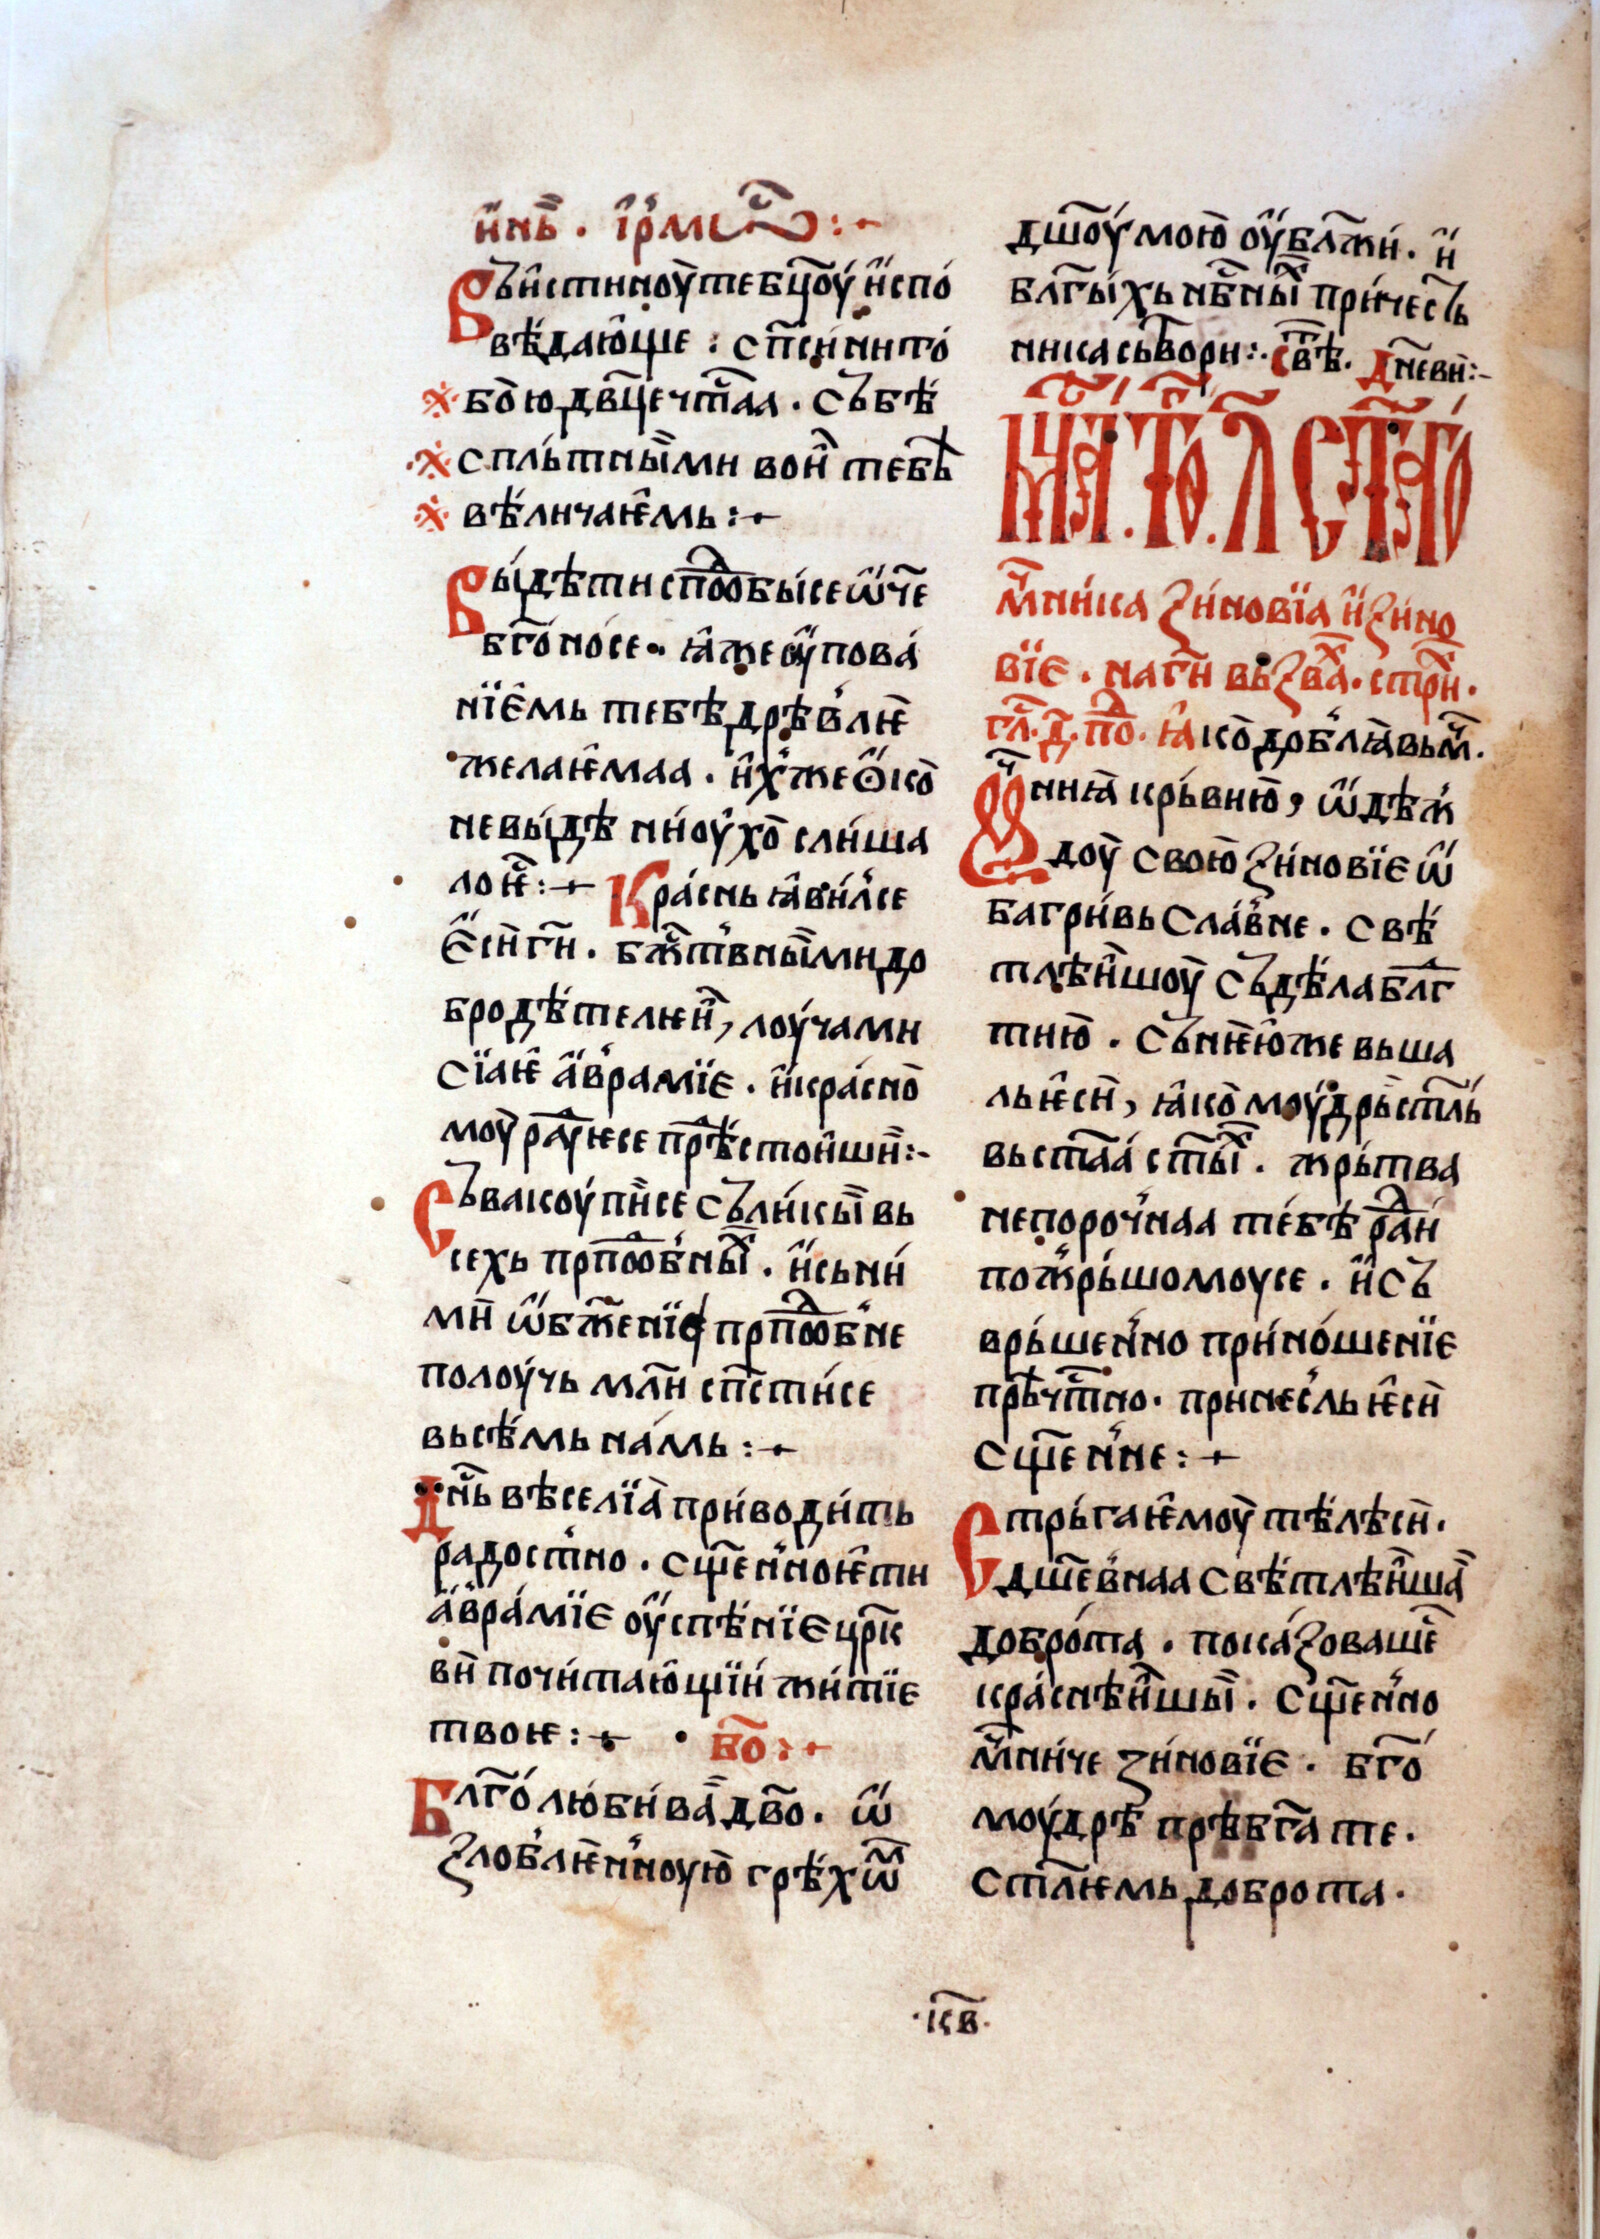 и҆нь҇ . і҆рмѡс҇ :~
Въи҆стиноу̀ те бц҃оу́ и҆спо́
вѣ́даю҆ще : сп҃сени то́
бо̀ю дв҃це чт҇аа . съ бѣ́
с пль́тны̏ми вои҆ тебѣ̀
вѣ́личаѥ҆мь :~
Вы́дѣти сп҃ѡⷣбы́се ѿ҆ч҃е
бг҃о́но́се . ꙗ҆́же оу҆пова́
нїе҆мь тебѣ дрѣ́в'лѥ̀
желаѥ҆маа . и҆х'же ѻ҆ко̀
не вы́дѣ ни́ оу҆́хо̀ сли́ша
ло ѥ҇ :~ Кра́снь ꙗ҆ви́л'се
е҆сѝ г҃и . бж҇тв'ны̏ми до
бродѣ́телѥи̏, лоу́чами
сїаѥ҆ а҆́в'рамїе . и҆ кра́сно̀
моу̀ раⷣу́ѥсе прѣⷣстои҆ши̏ :~
Съвакоу́пи̏се съ ли́кы̏ вь
сехь прпⷣѡбны̏х . и҆ сь ни́
мѝ ѡ҆бж҃енїе прпⷣѡб'не
полоу́чь мл҃и сп҃сти́се
вьсѣ́мь на́мь :~
Дн҇ь вѣселїа̀ при́води́ть
радост'но . сщ҃ен'но ѥ҆ти
а҆́вра́мїе оу҆спѣ́нїе цр҃к
вѝ почи́таю҆щїи́ жи́тїе
твоѥ :~ . бо҃ :~
Блг҃о́ лю́би́ва̏а дв҃о . ѿ҆
ѕлоб'лѥ̀н'ноую̀ грѣ́хѡⷨ
дш҃оу́ мою̀ оу҆бл҃жи́ . и҆
блг҃ы́хь нб҇ны̏х при́чест̾ь
ника сьтвори :. свѣ҃т . Дневнⷩ :~
Мца҇ . то҃ . л҃ . ст҃аго
мⷱ҇ни́ка ѕи́новїа и҆ ѕи́но
вїе . на г҃и вьзва̏х . стр҃и .
гл҃ . д҃ . по҇ⷣ . ꙗ҆ко̀ доб'лꙗ̀ вь мⷱ҇ .
Мⷱ҇ниꙗ̀ крь́вню̀, ѡ҆дѣ́ж
доу̀ свою̀ ѕи́новїе ѡ҆
багри́вь сла́в'не . свѣ́
тлѣи̏шоу̀ съдѣ́ла блⷣг
тию̀ . съ нѥ́ю҆же вьша
ль ѥ҆сѝ, ꙗ҆ко̀ моу́дрь̀ ст҃ль
вь ст҃аа́ ст҃ы̏х . жрь́тва
непороч'наа те́бѣ раⷣи́
пож'рь́шомоусе . и҆ съ
врь́шен'но при́но́шенїе
прѣчⷭ҇тно . принесль ѥ҆сѝ
сщ҃ен'не :~
Стрь́гаѥ҆моу̀ тѣ́лѣси̏ .
дш҃ев'наа свѣ́тлѣи̏ша̏
добро́та . пока́ѕоваше҇
кра́снѣи̏шы̏ . сщ҃ен'но
мⷱ҇ни́че ѕи́новїе . бг҃о́
моу́дрѣ прѣбг҃ате .
ст҃лѥмь доброта .
.ксв҃.